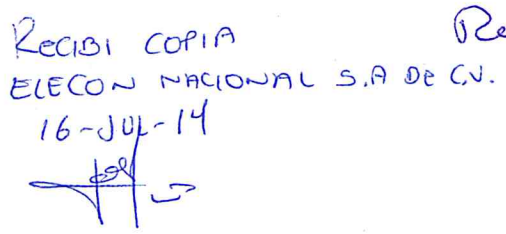 RECIBI COPIA
ELECON NACIONAL S.A DE C.V.
16-JUL-14